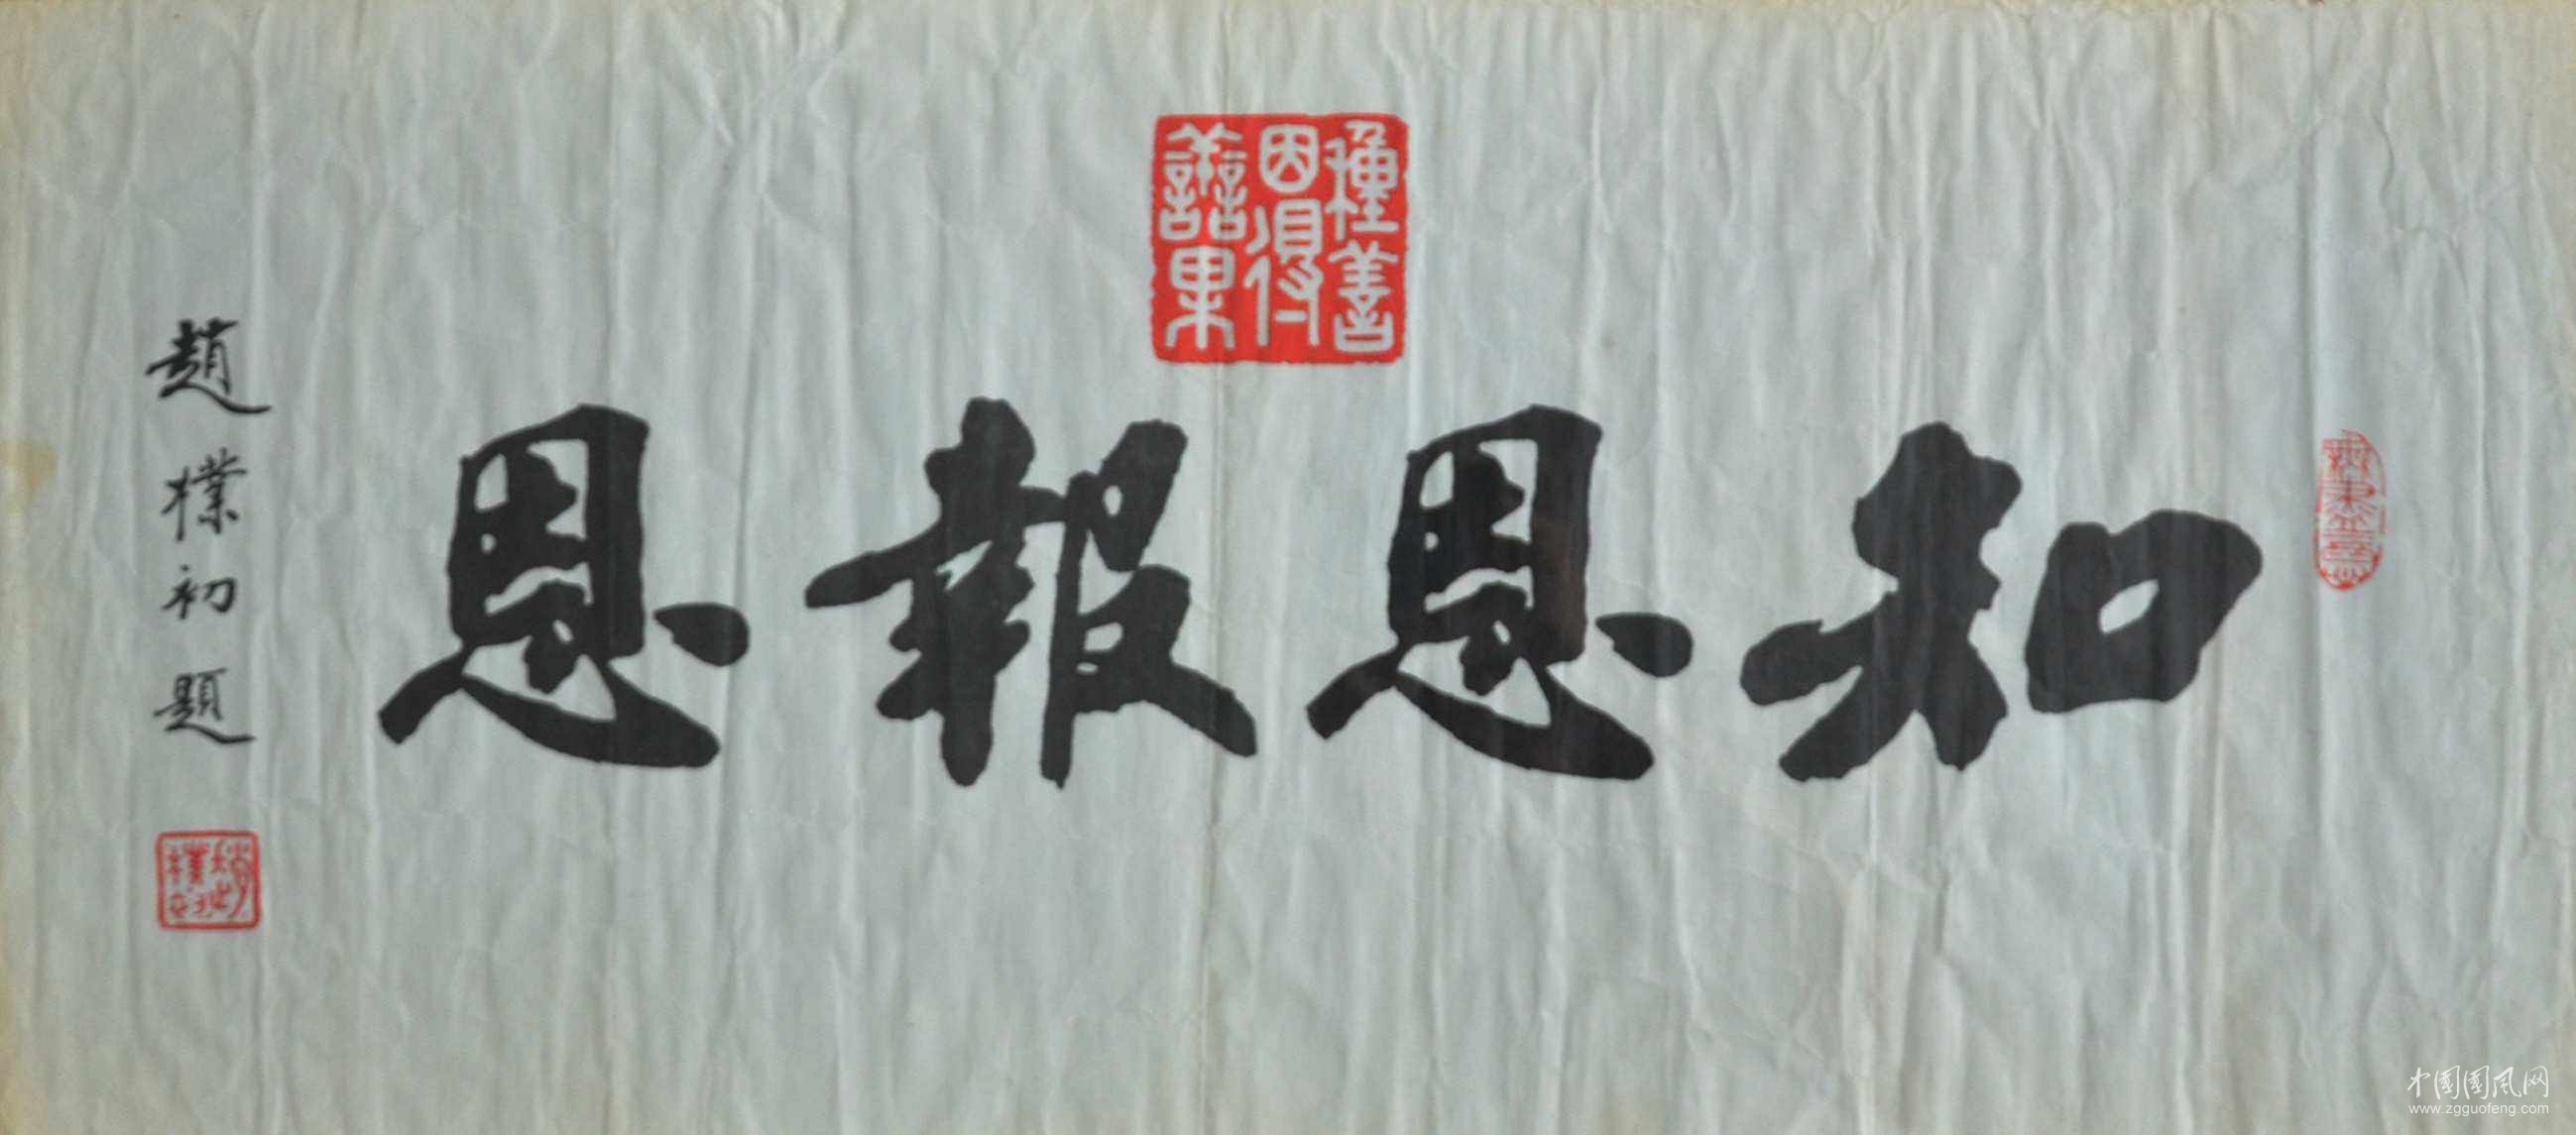 知恩報恩
種善因得善果
趙樸初題
趙樸初
中國國风网
www.zgguofeng.com